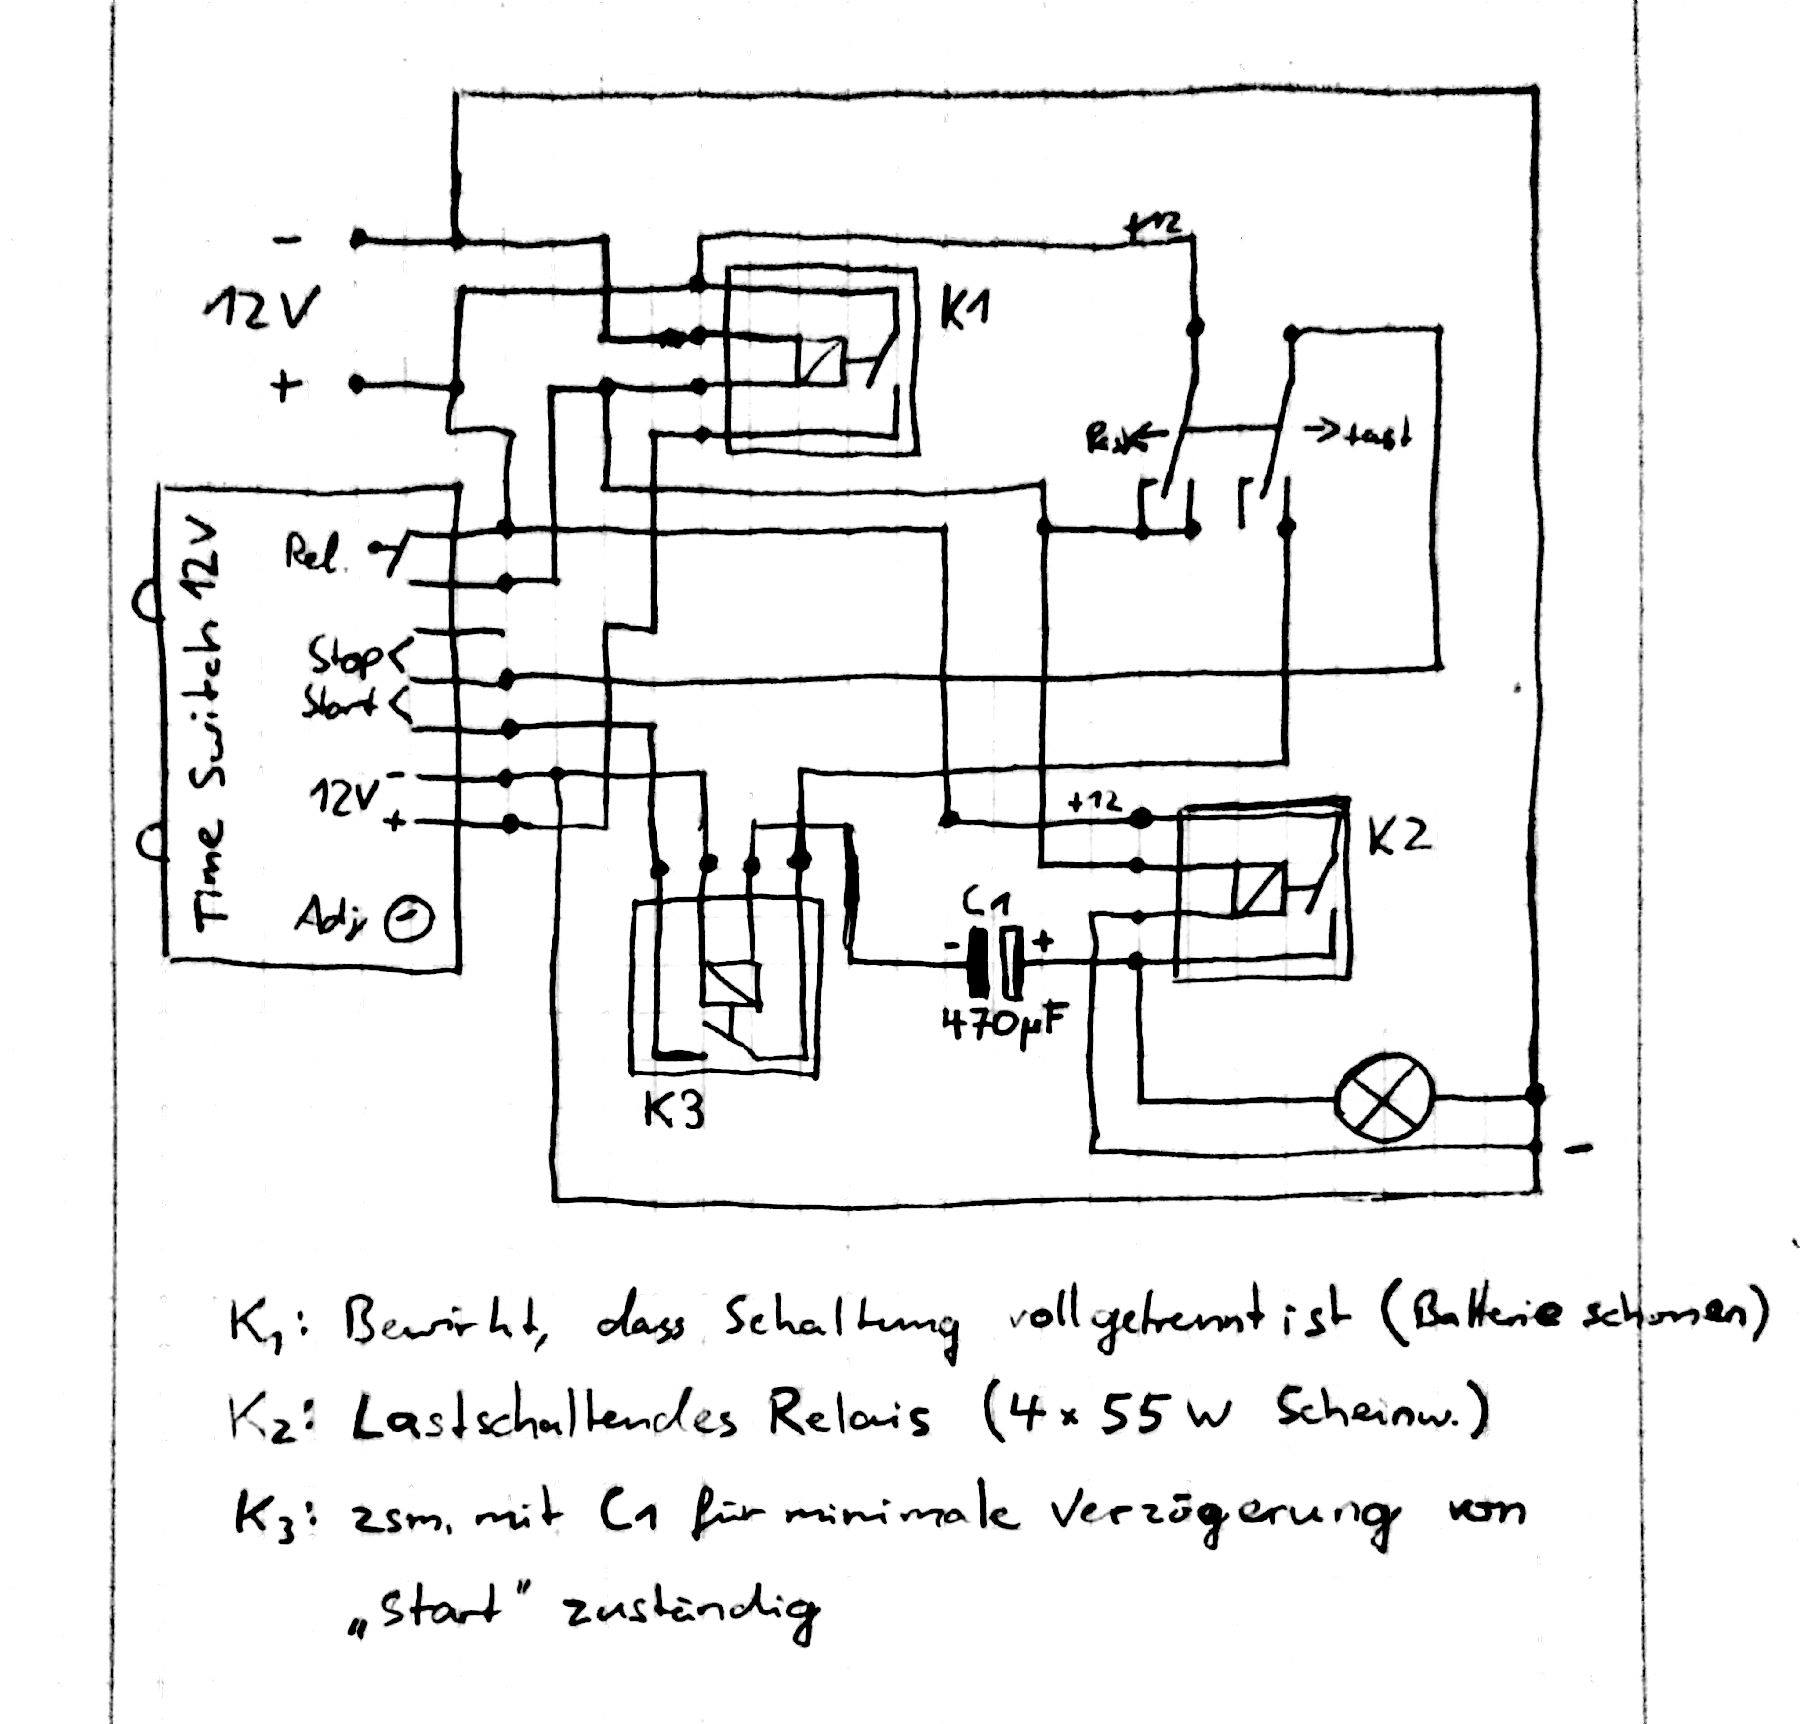 +12
-
12V
K1
+
Rast
→ tast
Time Switch 12V
Rel.
Stop
Start
12V
-
+
Adj
+12
K2
C1
- +
470µF
K3
-
K1: Bewirkt, dass Schaltung voll getrennt ist (Batterie schonen)
K2: Lastschaltendes Relais (4 x 55 W Scheinw.)
K3: zsm. mit C1 für minimale Verzögerung von
„Start" zuständig